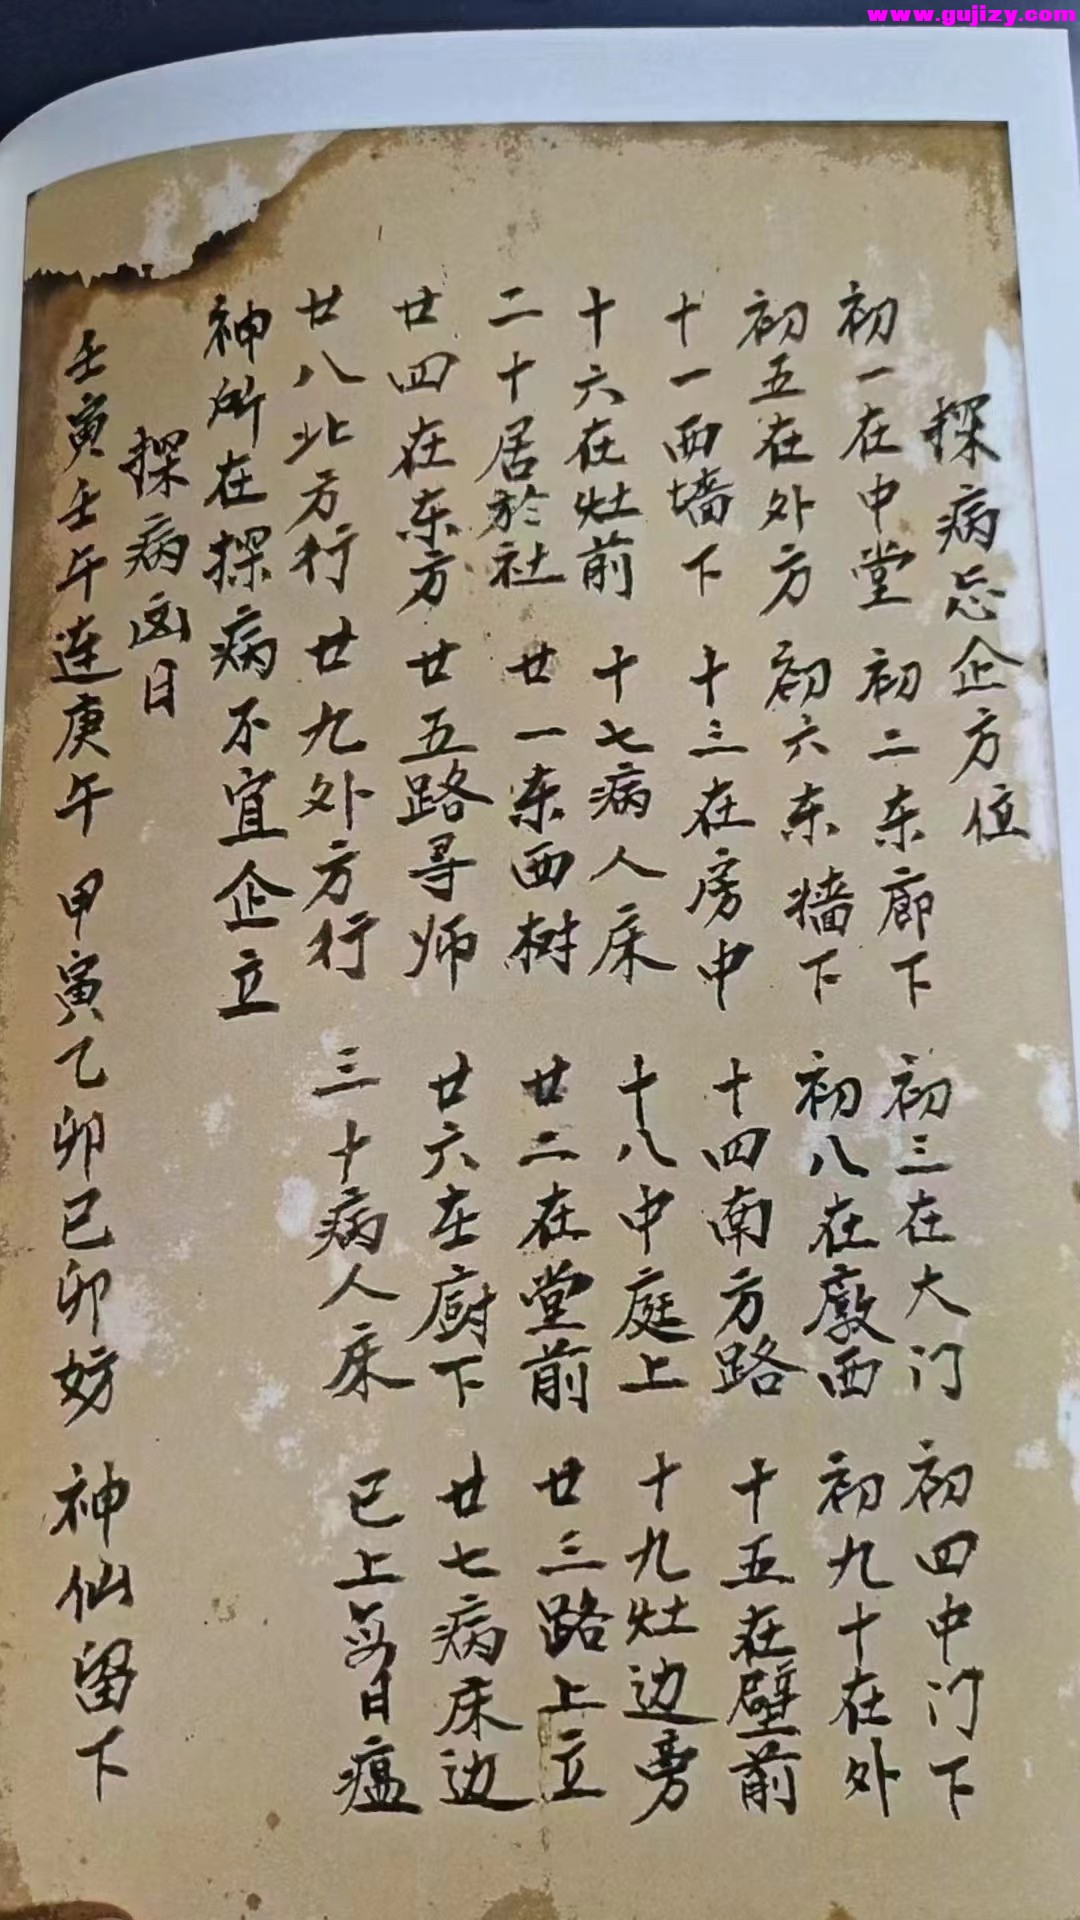 www.gujizy.com
探病忌企方位
初一在中堂 初二东廊下 初三在大门 初四中门下
初五在外方 初六东墙下 初八在廒西 初九十在外
十一西墙下 十三在房中 十四南方路 十五在壁前
十六在灶前 十七病人床 十八中庭上 十九灶边旁
二十居於社 廿一东西树 廿二在堂前 廿三路上立
廿四在东方 廿五路寻师 廿六在廚下 廿七病床边
廿八北方行 廿九外方行 三十病人床 已上每日瘟
神所在探病不宜企立
探病凶日
壬寅壬午连庚午 甲寅乙卯己卯妨 神仙留下